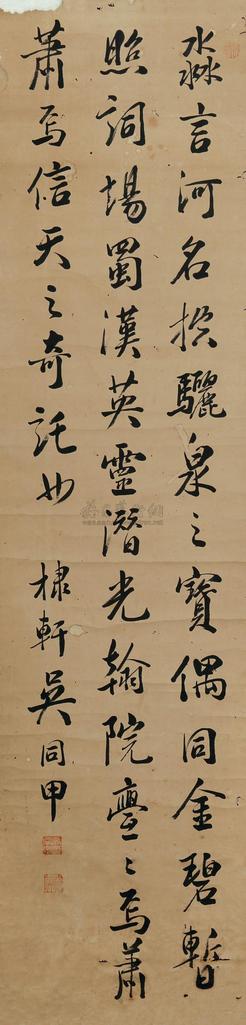 淼言河名投驪泉之寶偶同金碧暫
照詞場蜀漢英靈潛光翰院亹々焉蕭
蕭焉信天之奇託也 棣軒吳同甲